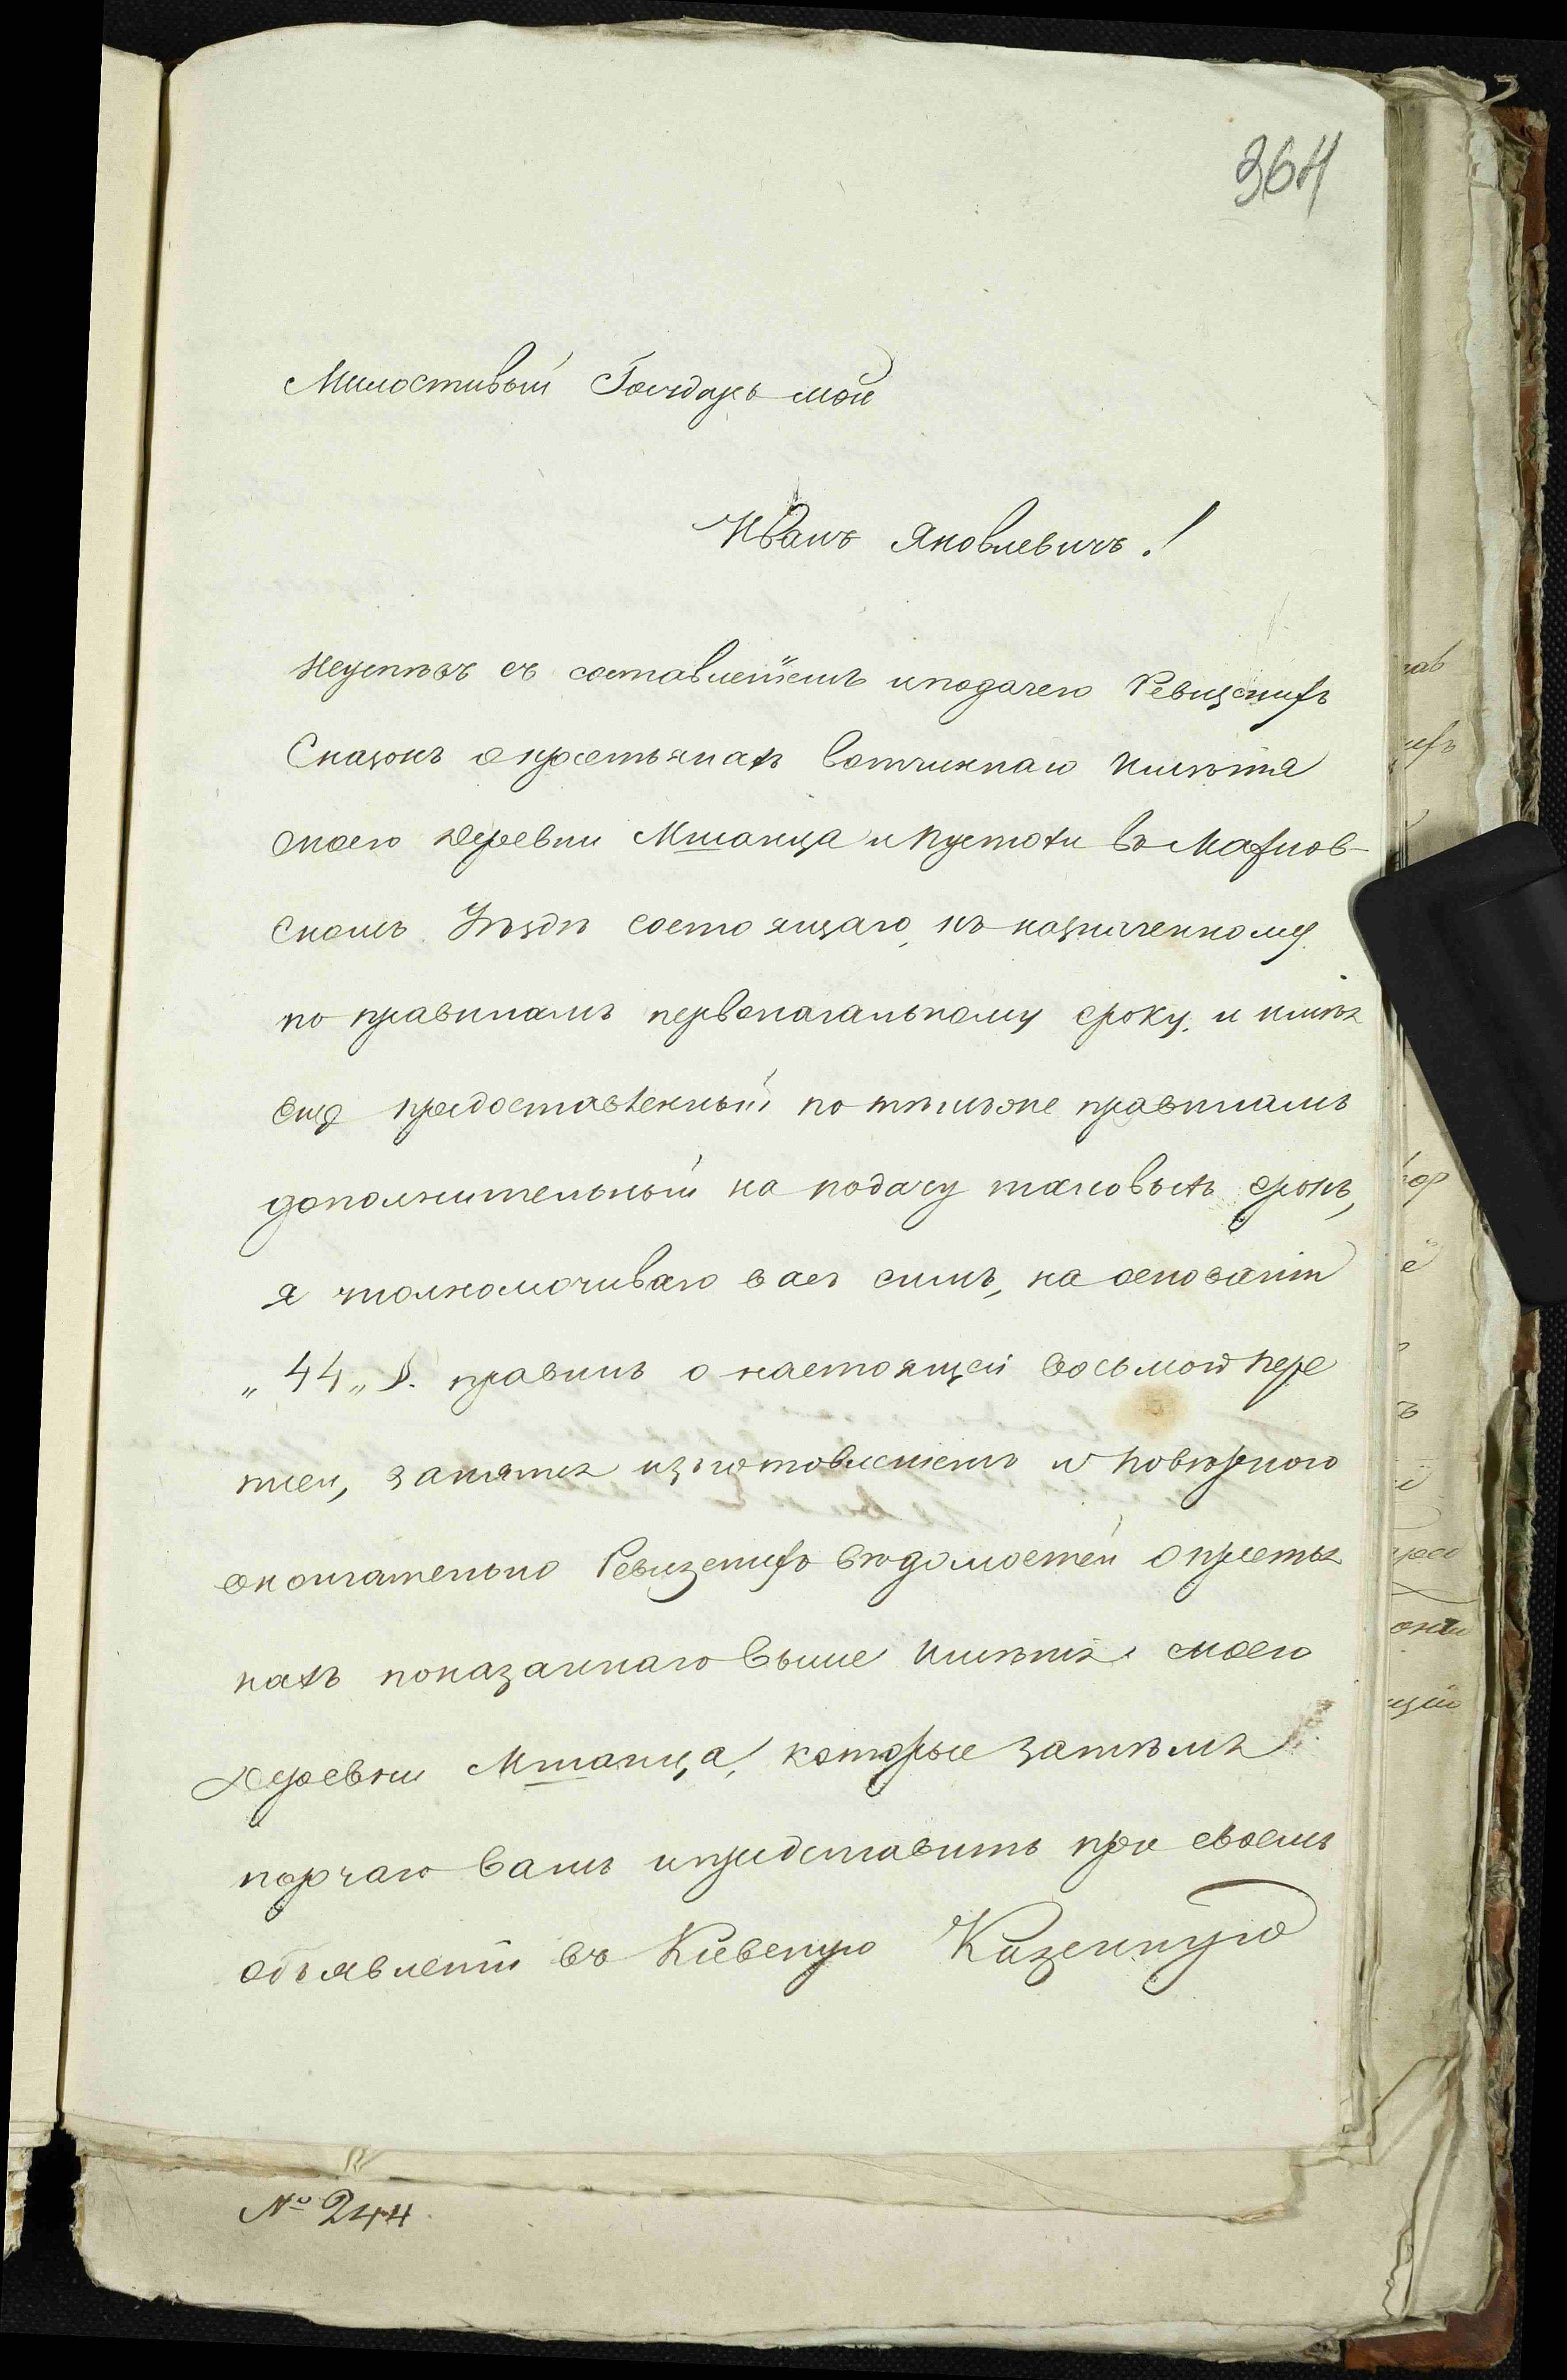 364
Милостивый Государь мой
Иванъ Яковлевичъ!
Неуспѣвъ съ составленіемъ и подачею Ревизскихъ
Сказокъ о крестьянахъ вотчиннаго имѣнія
моего деревни Мшанца и Пустохи въ Махнов-
скомъ Уѣздѣ состоящаго, къ назначенному
по правиламъ первоначальному сроку, и имѣя
еще предоставленный по тѣмъ же правиламъ
дополнительный на подачу таковыхъ срокъ,
я уполномочиваю васъ симъ, на основаніи
„44„ §. правилъ о настоящей восьмой пере
писи, заняться изъготовленіемъ и повѣркою
окончательно Ревизскихъ вѣдомостей о крестья
нахъ показаннаго выше имѣнія моего
деревни Мшанца, которые затѣмъ
поручаю вамъ и представить при своемъ
объявленіи въ Кіевскую Казенную
№ 244